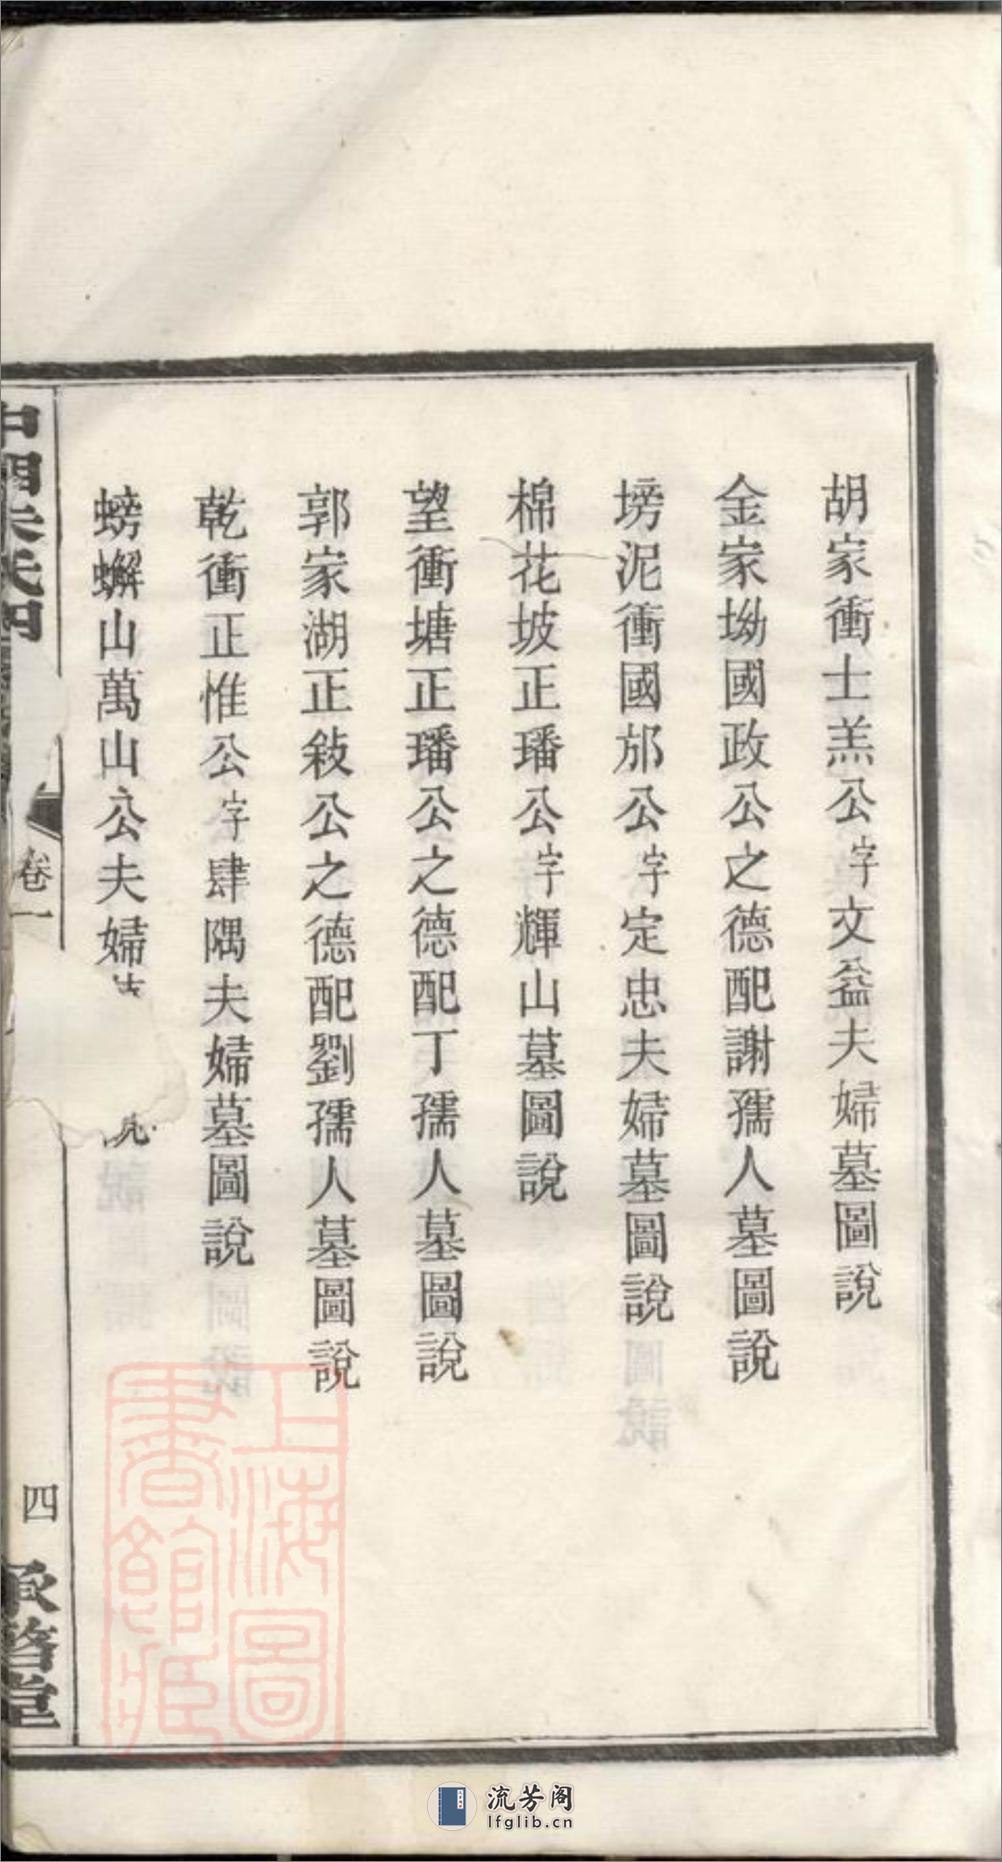 胡家衝士羔公字文益夫婦墓圖說
金家坳國政公之德配謝孺人墓圖說
塝泥衝國邡公字定忠夫婦墓圖說
棉花坡正璠公字輝山墓圖說
望衝塘正璠公之德配丁孺人墓圖說
郭家湖正敍公之德配劉孺人墓圖說
乾衝正惟公字肆隅夫婦墓圖說
螃蠏山萬山公夫婦
卷一
四
承啓堂
上海圖書館藏
流芳阁
lfglib.cn